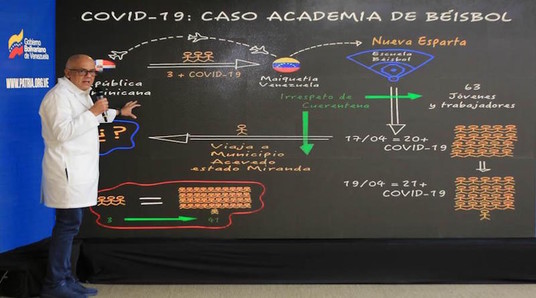 COVID-19: CASO ACADEMIA DE BÉISBOL
Gobierno
Bolivariano
de Venezuela
WWW.PATRIA.ORG.VE
pública
minicana
3 + COVID-19
Maiquetia
Venezuela
Nueva Esparta
Escuela
Béisbol
Irrespeto de
Cuarentena
63
Jóvenes
y trabajadores
?
Viaja a
Municipio
Acevedo
estado Miranda
17/04 = 20+
COVID-19
19/04 = 21+
COVID-19
3
=